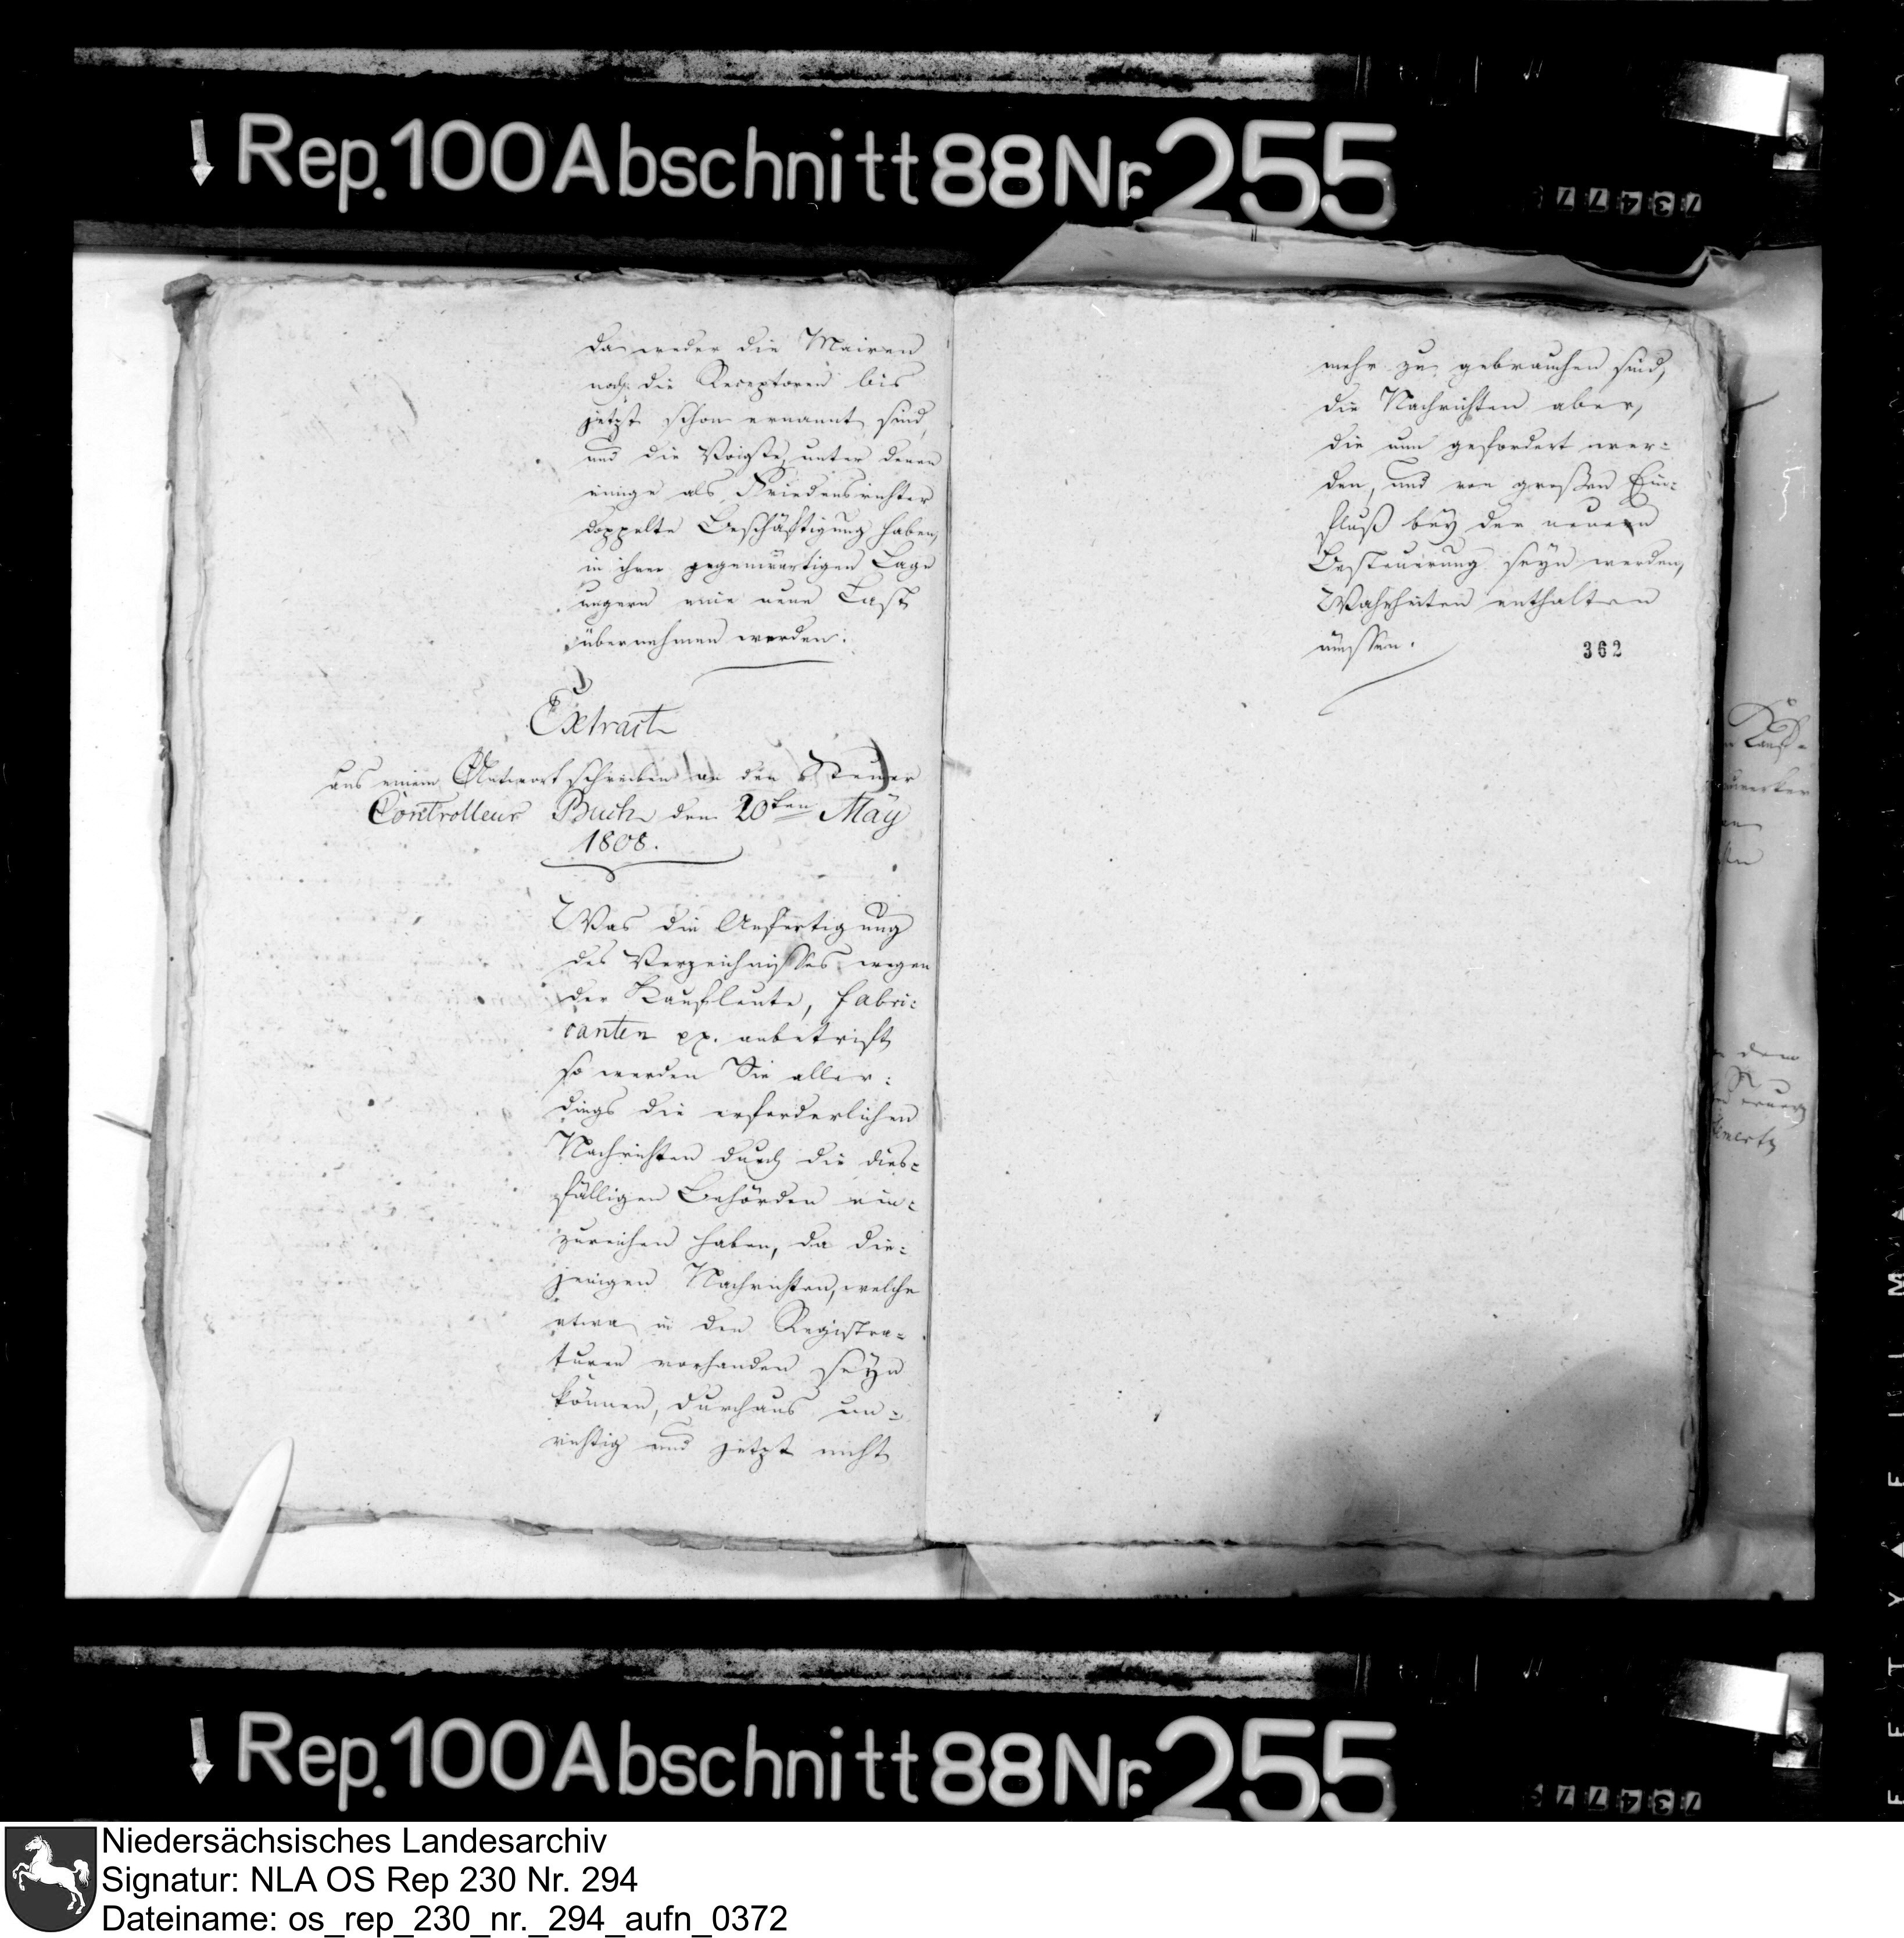 Rep. 100 Abschnitt 88 Nr. 255
73477
da weder die Mairen
noch die Receptoren bis
jetzt schon ernannt sind,
und die Voigte, unter denen
einige als Friedensrichter
doppelte Beschäftigung haben,
in ihrer gegenwärtigen Lage
ungern eine neue Last
übernehmen werden.
Extract
aus einem Antwortschreiben an den Steuer
Controlleur Buch den 20ten May
1808.
Was die Anfertigung
des Verzeichnisses wegen
der Kaufleute, Fabri:
canten pp. anbetrift
so werden Sie aller:
dings die erforderlichen
Nachrichten durch die dies:
fälligen Behörden ein:
zureichen haben, da die:
jenigen Nachrichten, welche
etwa in den Registra:
turen vorhanden seyn
können, durchaus un:
richtig und jetzt nicht
mehr zu gebrauchen sind,
die Nachrichten aber,
die nun gefordert wer:
den, und von großen Ein:
fluß bey der neuen
Besteuerung seyn werden,
Wahrheiten enthalten
müssen.
362
Rep. 100 Abschnitt 88 Nr. 255
73477
Niedersächsisches Landesarchiv
Signatur: NLA OS Rep 230 Nr. 294
Dateiname: os_rep_230_nr._294_aufn_0372